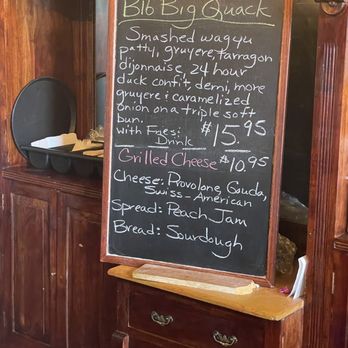 Bib Big Quack
Smashed wagyu
patty, gruyere, tarragon
dijonnaise, 24 hour
duck confit, demi, more
gruyere & caramelized
onion on a triple soft
bun.
with Fries: $15.95
Drink
Grilled Cheese $10.95
Cheese: Provolone, Gouda,
Swiss-American
Spread: Peach Jam
Bread: Sourdough